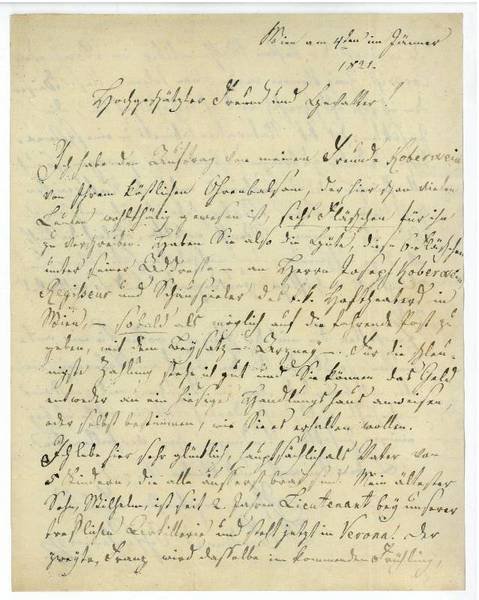 Wien am 4ten im Jänner
1821.
Hochgeschätzter Freund und Gevatter!
Ich habe den Auftrag von meinem Freunde Koberwein
von Ihrem köstlichen Ohrenbalsam, der hier schon vielen
Leuten wohlthätig gewesen ist, sechs Fläschchen für ihn
zu verschreiben. Haben Sie also die Güte, diese 6 Fläschchen
unter seiner Addresse – an Herrn Joseph Koberwein
Regisseur und Schauspieler des k. k. Hoftheaters in
Wien, – sobald als möglich auf die fahrende Post zu
geben, mit dem Beysatz – Arzney –. Für die schleu-
nigste Zahlung stehe ich gut und Sie können das Geld
entweder an ein hiesiges Handlungshaus anweisen,
oder selbst bestimmen, wie Sie es erhalten wollen.
Ich lebe hier sehr glücklich, hauptsächlich als Vater von
5 Kindern, die alle äußerst brav sind. Mein ältester
Sohn, Wilhelm, ist seit 2 Jahren Lieutenant bey unserer
trefflichen Artillerie und steht jetzt in Verona. Der
zweyte, Franz wird dasselbe im kommenden Frühling,